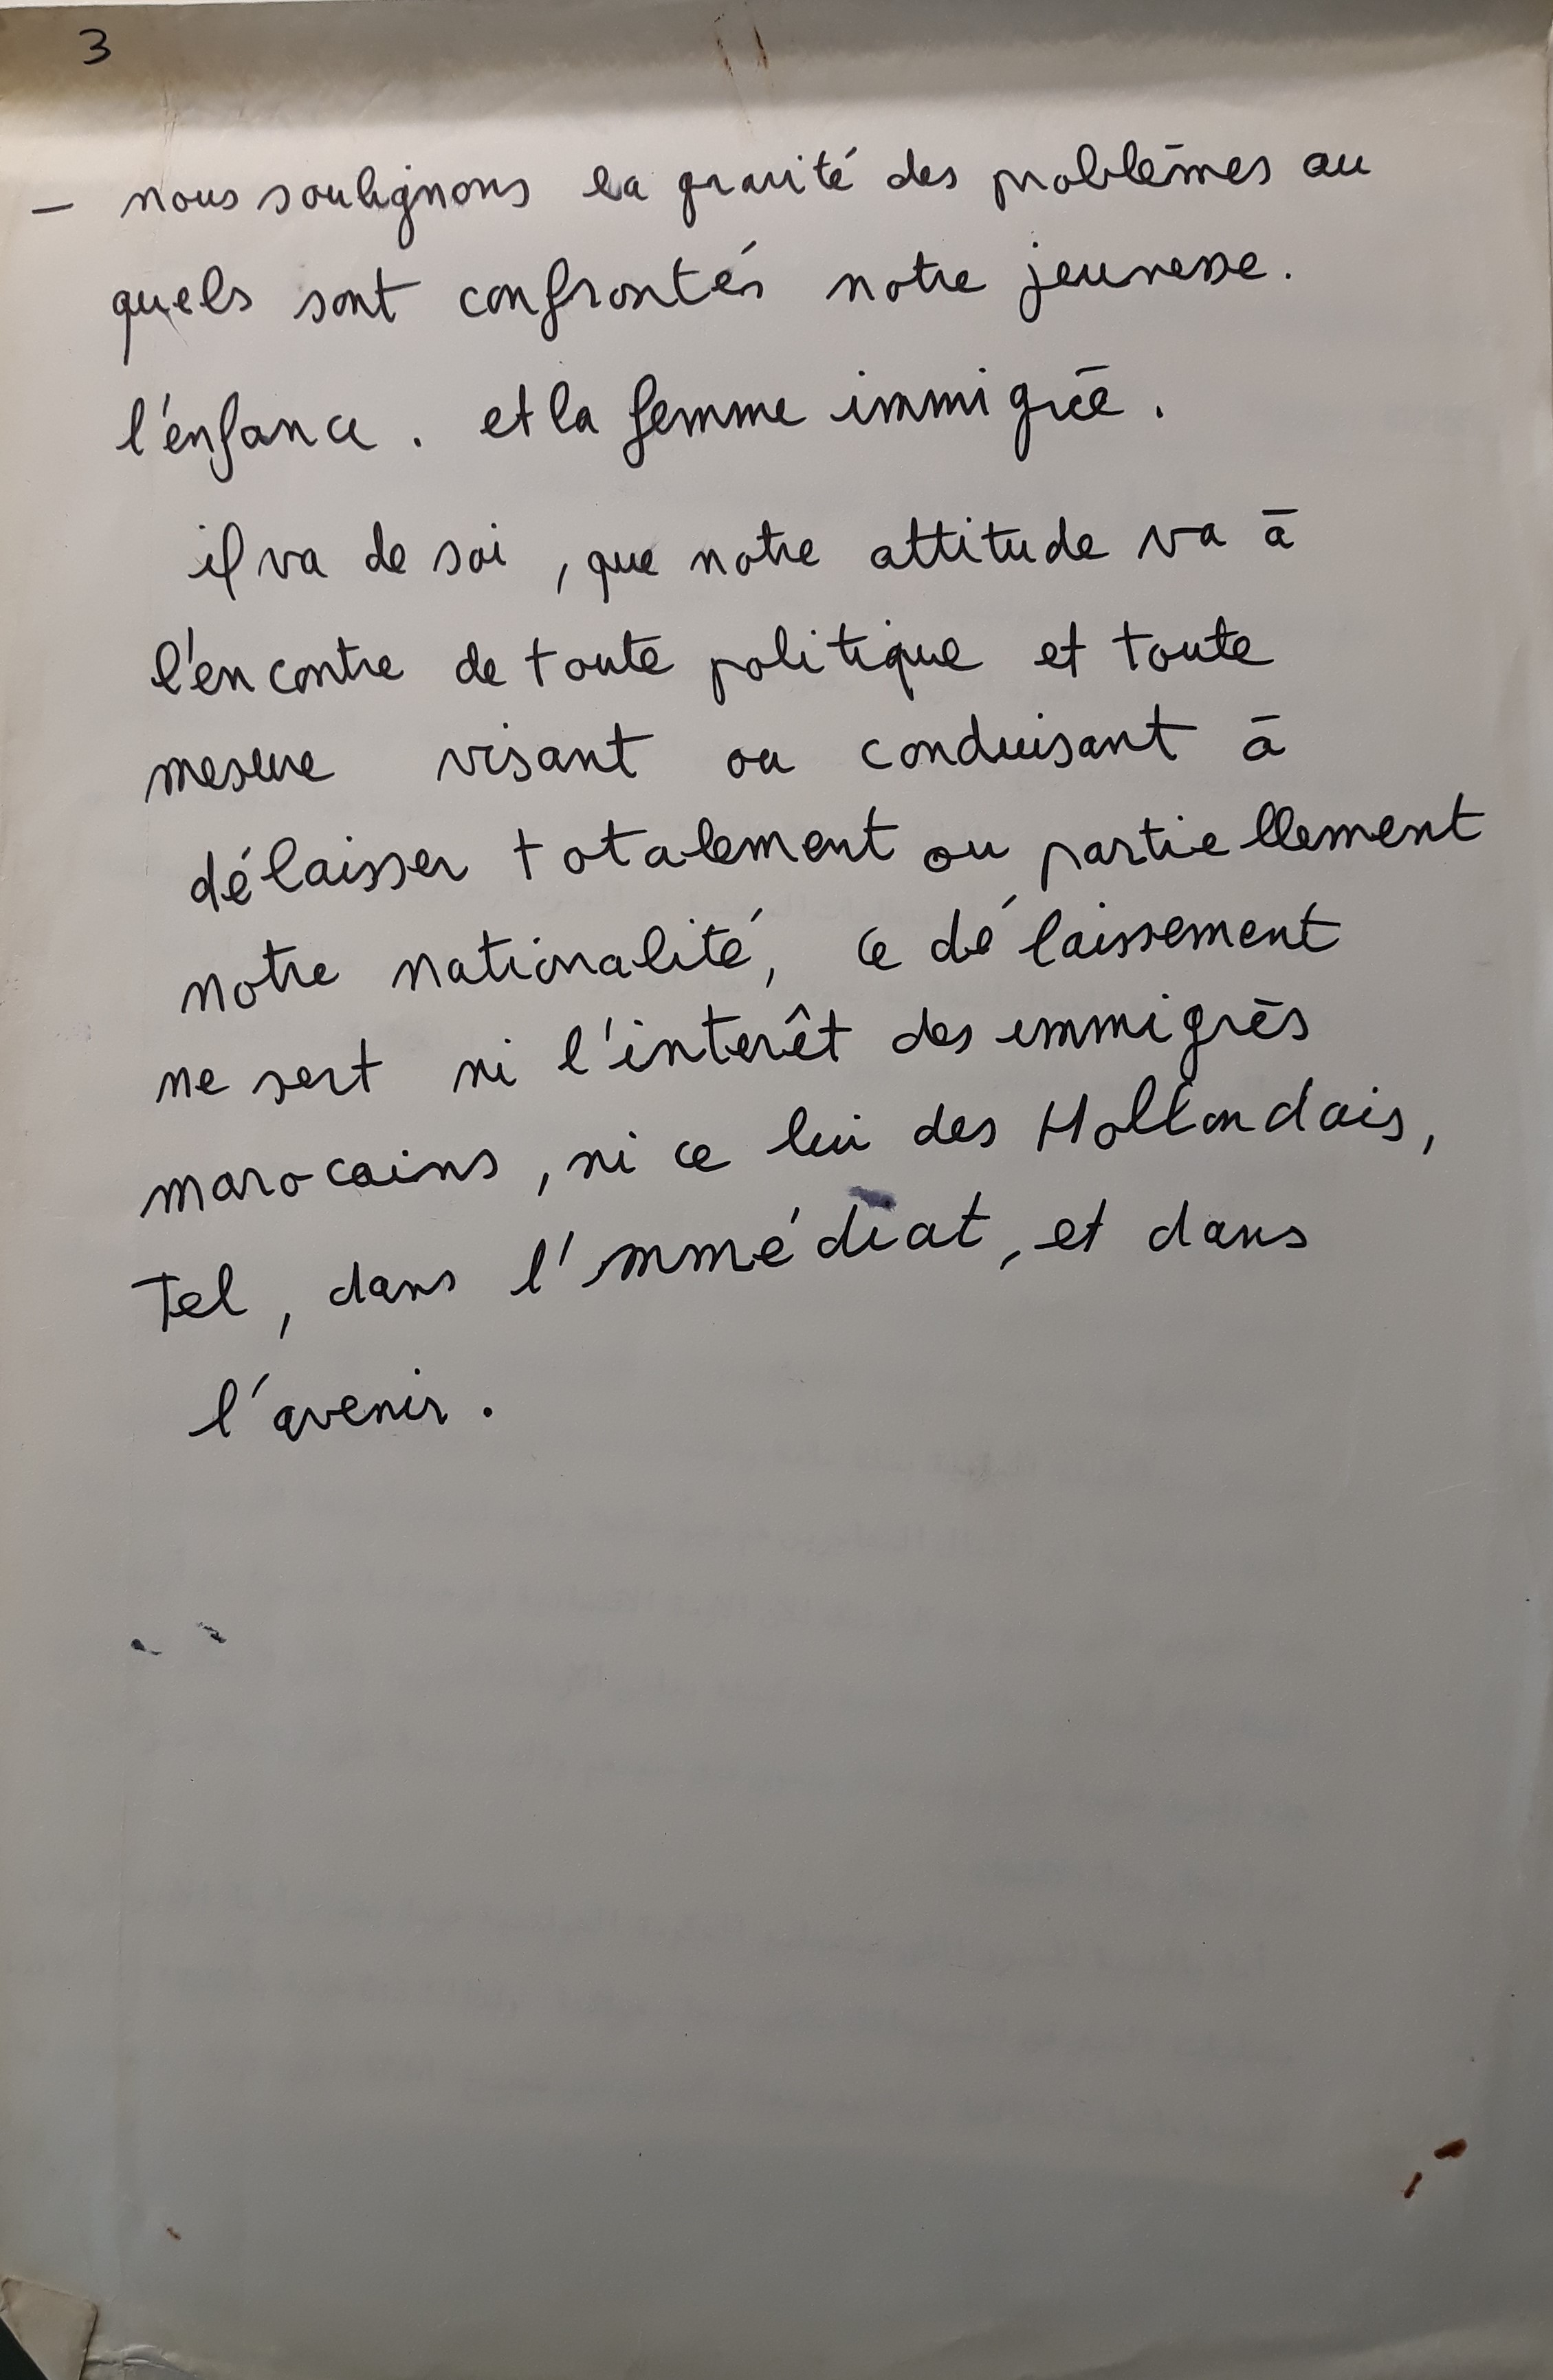 3
- nous soulignons la gravité des problèmes au
quels sont confrontés notre jeunesse.
l'enfance. et la femme immigrée.
il va de soi, que notre attitude va à
l'encontre de toute politique et toute
mesure visant ou conduisant à
délaisser totalement ou partiellement
notre nationalité, ce délaissement
ne sert ni l'interêt des immigrés
marocains, ni ce lui des Hollandais,
Tel, dans l'immédiat, et dans
l'avenir.